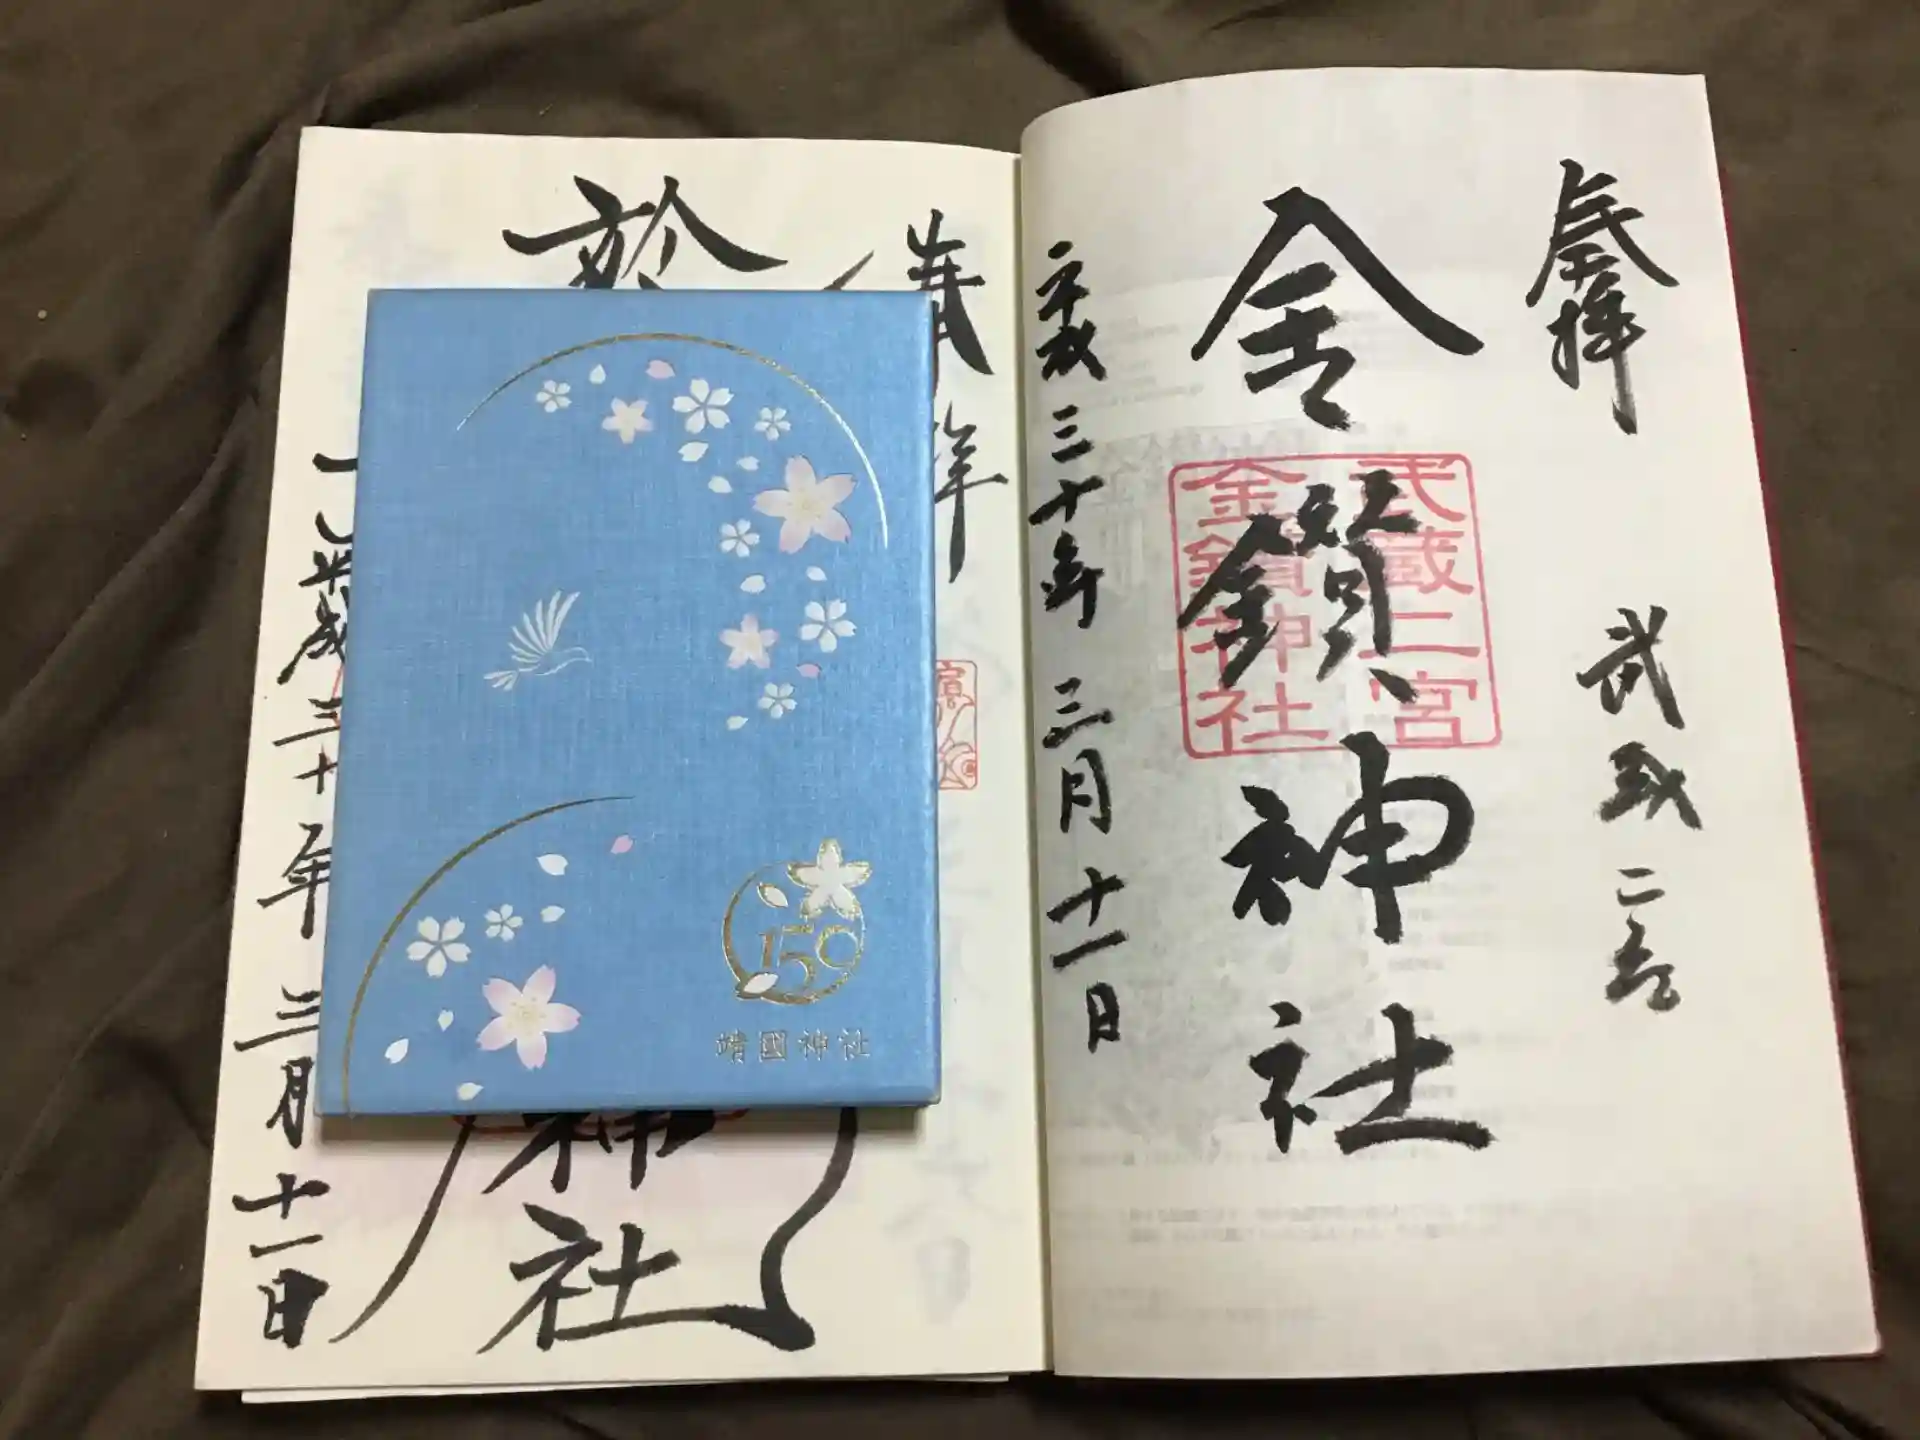 参拝
武蔵二宮
金鑚神社
武蔵二宮
金鑚神社
平成三十年三月十一日
奉拝
於
神社
平成三十年三月十一日
150
靖國神社